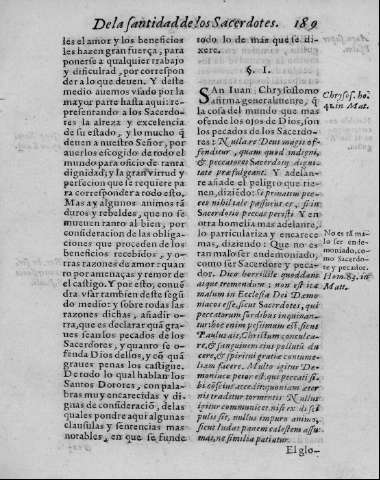 De la santidad de los Sacerdotes. 189
les el amor y los beneficios
les hazen gran fuerça, para
ponerse a qualquier trabajo
y dificulrad, por correspon
der a lo que deuen. Y deste
medio auemos vsado por la
mayor parte hasta aqui: re-
presentando a los Sacerdo-
res la alteza y excelencia
de su estado, y lo mucho q̃
deuen a nuestro Señor, por
auerlos escogido de todo el
mundo para oficio de tanta
dignidad; y la gran virtud y
perfecion que se requiere pa
ra corresponder a todo esto.
Mas ay algunos animos tã
duros y rebeldes, que no se
mueuen tanto al bien, por
consideracion de las obliga-
ciones que proceden de los
beneficios recebidos, y o-
tras razones de amor: quan-
ro por amenaças y remor de
el castigo. Y por esto, conuē
dra vsar tambien deste segũ
do medio: y sobre rodas las
razones dichas, añadir o-
rra, que es declarar quã gra-
ues sean los pecados de los
Sacerdotes, y quanto se o-
fenda Dios dellos, y cõ quã
graues penas los castigue.
De rodo lo qual hablan los
Santos Dotores, con pala-
bras muy encarecidas y di-
gnas de consideraciõ, de las
quales pondre aqui algunas
clausulas y sentencias mas
notables, en que se funde
rodo lo de más que se di-
xere.
§. I.
SAn Iuan Chrysostomo
afirma generalmente, q̃
la cosa del mundo que mas
ofende los ojos de Dios, son
los pecados de los Sacerdo-
res: Nulla re Deus magis of-
fenditur, quam quod indigni,
& peccatores Sacerdotij digni-
tate præfulgeant. Y adelan-
re añade el peligro que rie-
nen, diziẽdo: Se primatem pre-
ces nihil tale passurus er, si in
Sacerdotio peccas peristi. Y en
otra homelia mas adelante,
lo particulariza y encarece
mas, diziendo: Que no es
tan malo ser endemoniado,
como ser Sacerdore y peca-
dor. Dico horribile quoddam
atque tremendum: non est ita
malum in Ecclesia Dei Dæmo-
niacos esse, sicut Sacerdotes, qui
peccatorum sordibus inquinan-
tur: hoc enim pessimum est, sicut
Paulus ait, Christum conculca-
re, & sanguinem eius pollutũ du
cere, & spiritui gratiæ contume-
liam facere. Multo igitur De-
moniaco peior est, qui peccati si-
bi cõscius accedit: quoniam æter
nis traditur tormentis. Nullus
igitur communicet, nisi ex disci
pulis sit, nullus impuro animo,
sicut Iudas panem cælestem assu
mat, ne similia patiatur.
El glo-
Chrysos. ho.
41. in Mat.
No es tã ma-
lo ser ende-
moniado, co-
mo Sacerdo-
te y pecador.
Hom. 83. in
Matt.